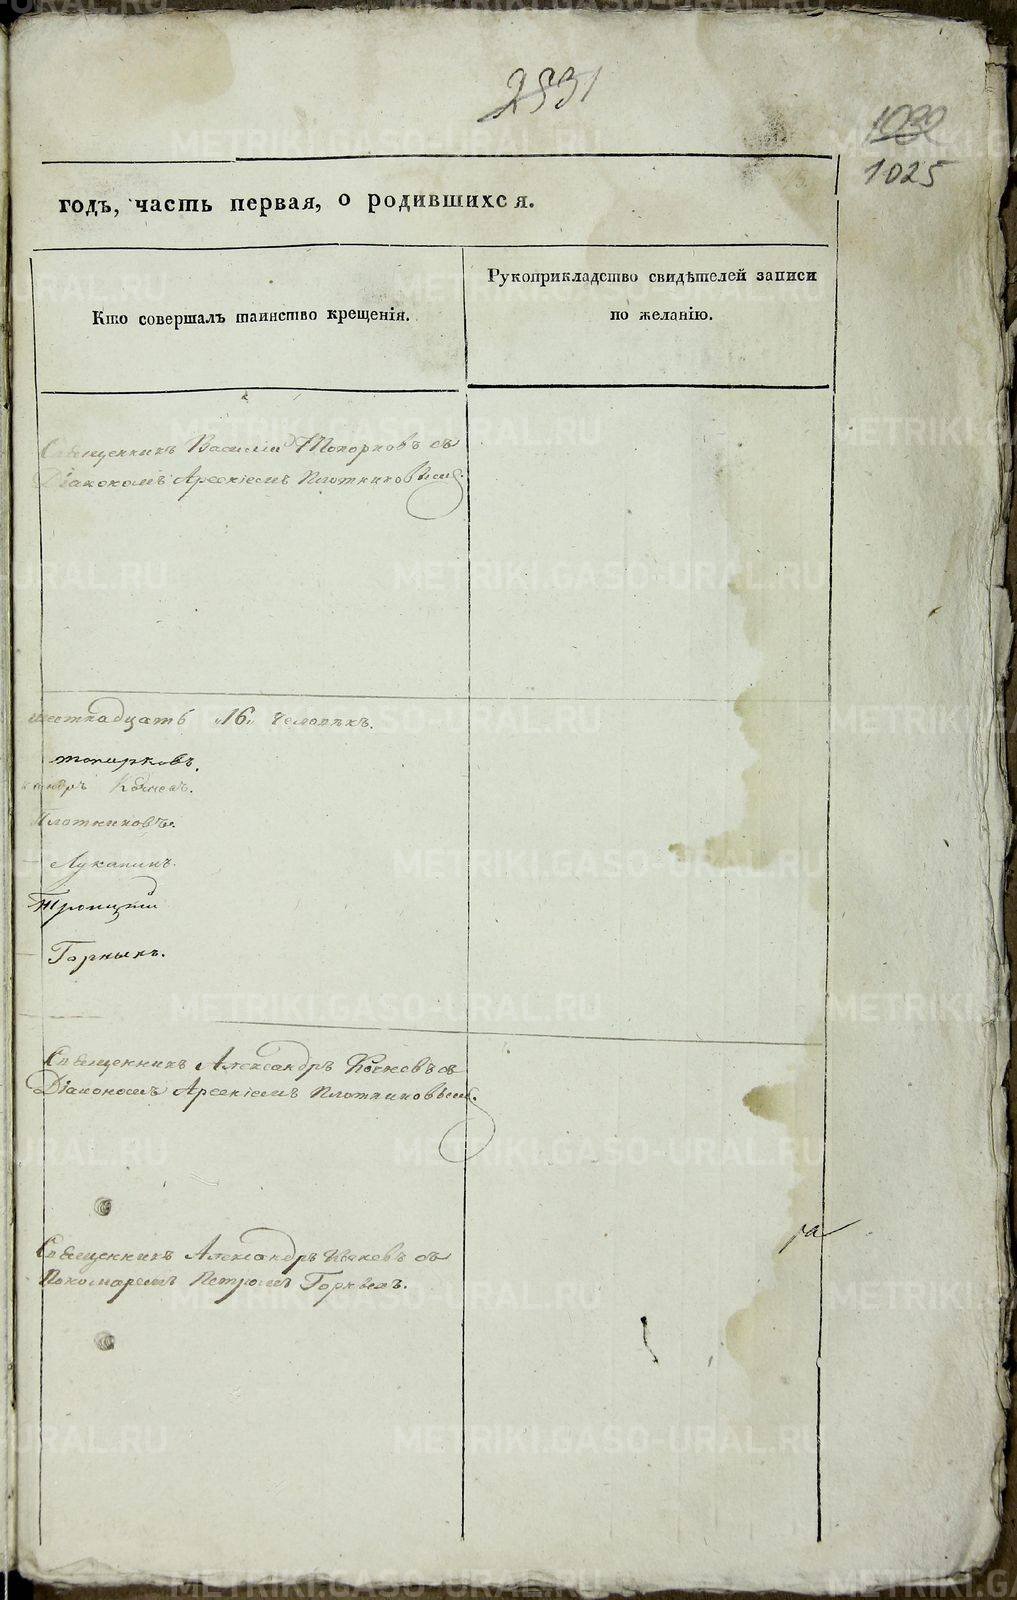 2531
1030
1025
годъ, часть первая, о родившихся.
Кто совершалъ таинство крещенія.
Рукоприкладство свидѣтелей записи
по желанію.
Священникъ Василій Топорковъ съ
Діакономъ Арсеніемъ Плотниковымъ.
шестнадцать „16„ человѣкъ.
Топорковъ.
Плотниковъ.
Луканинъ.
Троицкій
Горныхъ.
Священникъ Александръ съ
Діакономъ Арсеніемъ Плотниковымъ.
Священникъ Александръ съ
Пономаремъ Петромъ Горныхъ.
METRIKI.GASO-URAL.RU